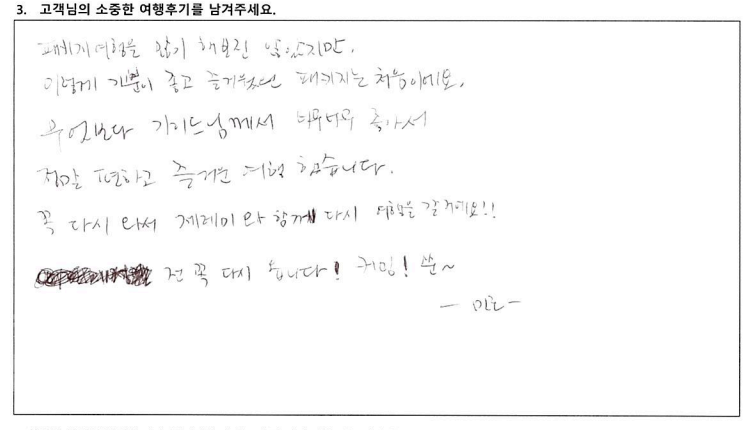 3. 고객님의 소중한 여행후기를 남겨주세요.
패키지여행을 많이 해보진 않았지만,
이렇게 기분이 좋고 즐거웠던 패키지는 처음이에요.
무엇보다 가이드님께서 너무너무 좋아서
정말 편하고 즐거운 여행 했습니다.
꼭 다시 와서 제레미와 함께 다시 여행을 갈거에요!!
전 꼭 다시 옵니다! 커밍! 쑨~